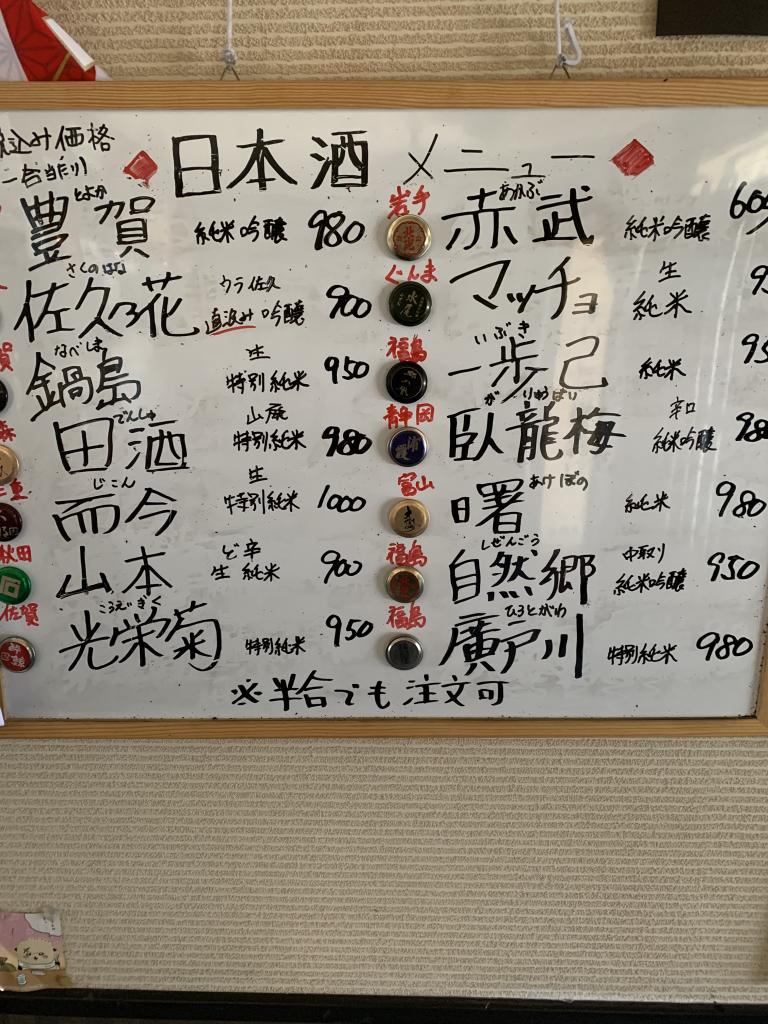 込み価格
一合当り)
◆日本酒メニュー◆
とよか
豊賀 純米吟醸 980
さくのはな
佐久乃花 ウラ佐久 直汲み 吟醸 900
賀
なべしま
鍋島 生 特別純米 950
森
でんしゅ
田酒 山廃 特別純米 980
重
じこん
而今 生 特別純米 1000
秋田
山本 ど辛 生 純米 900
佐賀
こうえいぎく
光栄菊 特別純米 950
岩手
あかぶ
赤武 純米吟醸 600
ぐんま
マッチョ 生 純米
福島
いぶき
一歩己 純米 95
静岡
がりゅうばい
臥龍梅 辛口 純米吟醸 980
富山
あけぼの
曙 純米 980
福島
しぜんごう
自然郷 中取り 純米吟醸 950
福島
ひろとがわ
廣戸川 特別純米 980
※半合でも注文可